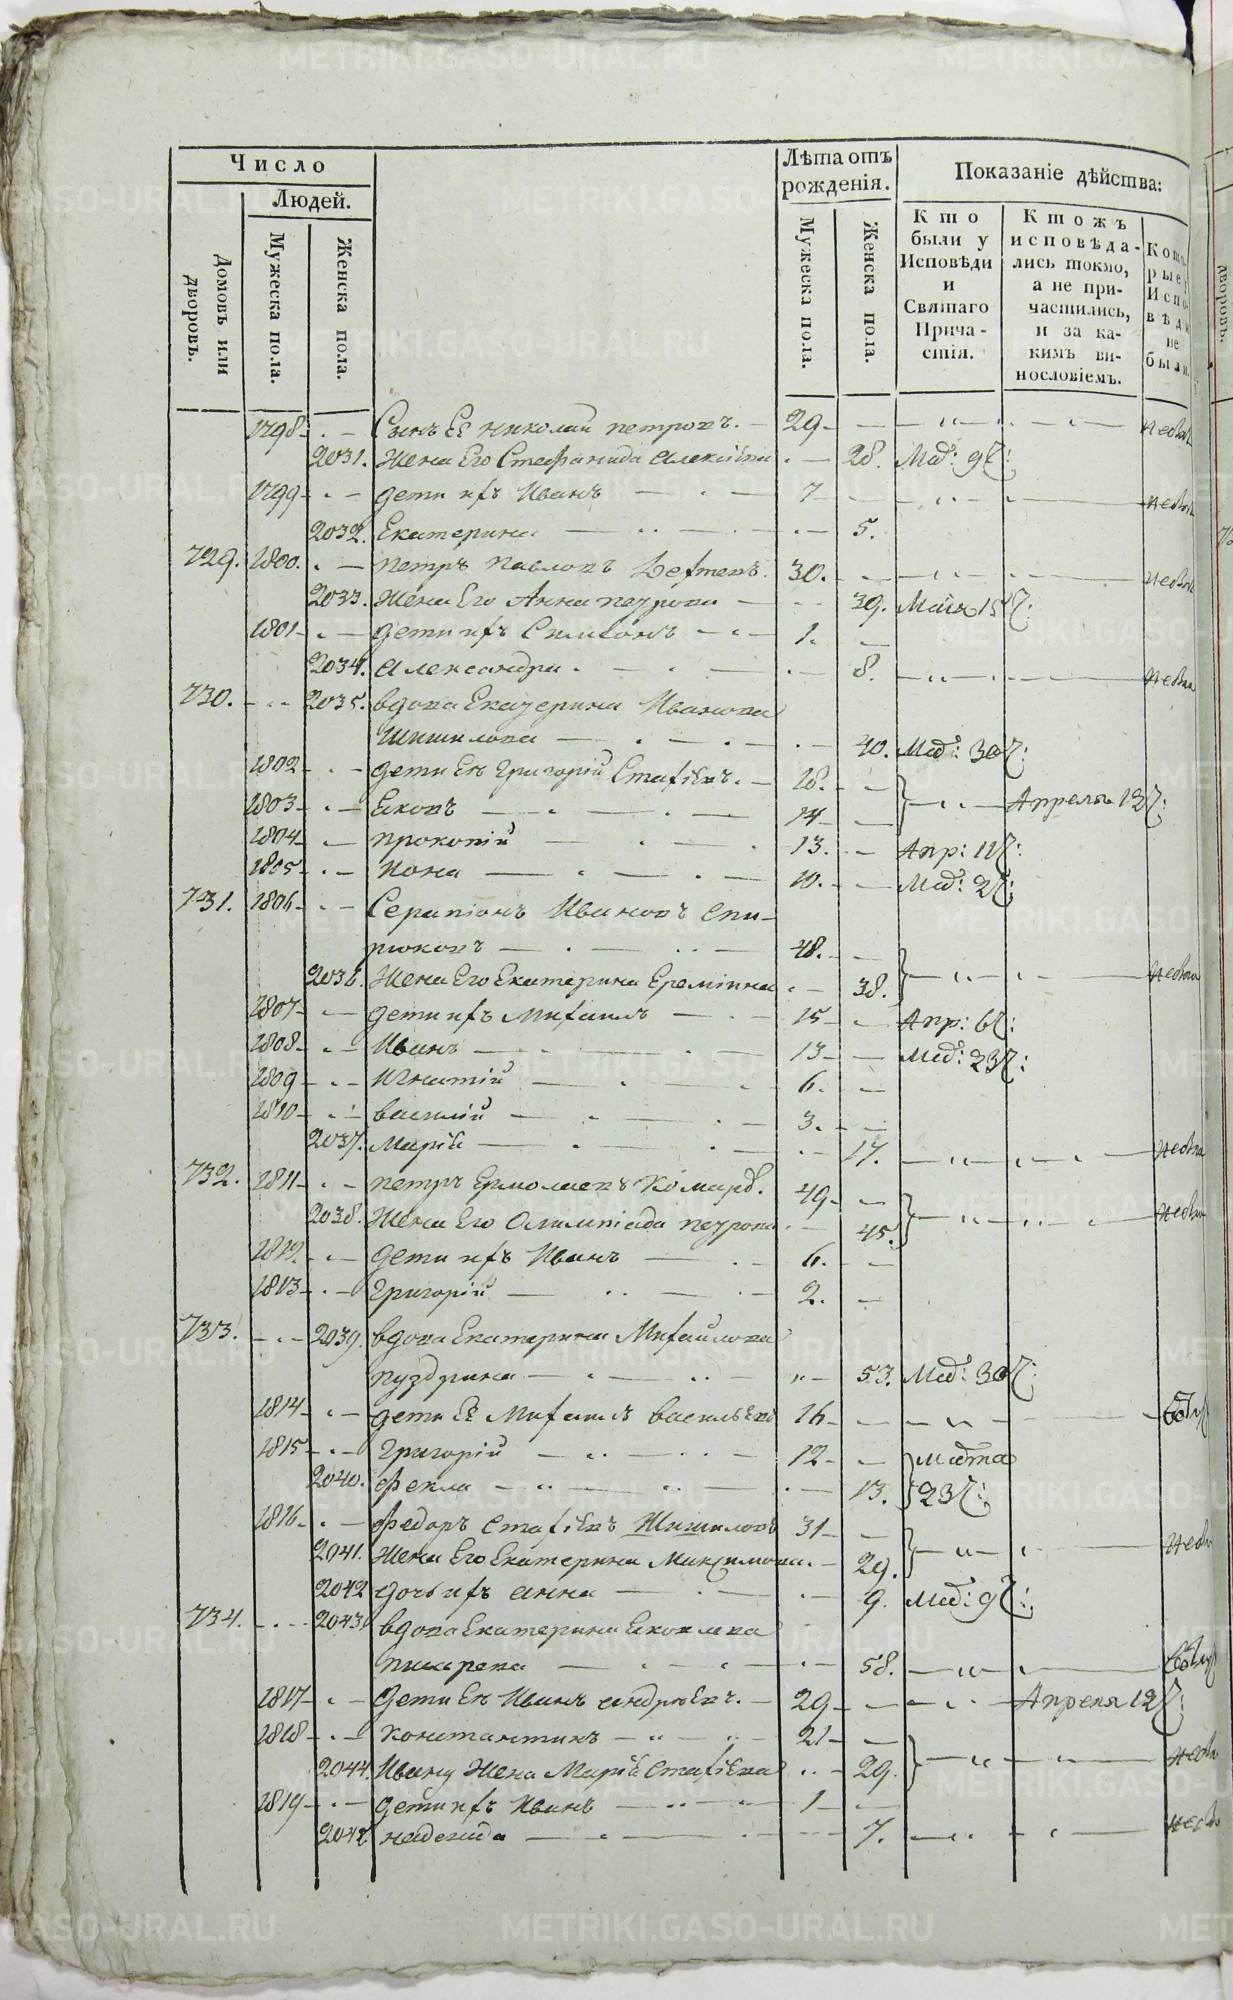 Число
Людей.
Домовъ или дворовъ.
Мужеска пола.
Женска пола.
Лѣта отъ рожденія.
Мужеска пола.
Женска пола.
Показаніе дѣйства:
Кто были у Исповѣди и Святаго Причастія.
Ктожъ исповѣдались токмо, а не причастились, и за какимъ винословіемъ.
Которые Исповѣди не были.
1798 Сынъ Её николай петровъ. 29
2031. Жена Его Стефанида алексіева 28. Мар: 9
1799 дети ихъ Иванъ 7
2032. Екатерина 5.
729. 1800. петръ павловъ 30.
2033. Жена Его Анна петрова 39. Маія 15
1801 дети ихъ Симеонъ 1.
2034. александра 8.
730. 2035. вдова Екатерина Иванова
Шишилова 40. Мар: 30
1802 дети Ея григорій Стафіевъ. 18.
1803 Яковъ 14 Апреля 12
1804 прокопій 13. Апр: 11
1805 Иона 10. Мар: 2
731. 1806 Серапіонъ Ивановъ
48.
2036. Жена Его Екатерина Ереміина 38.
1807 дети ихъ Михаилъ 15 Апр: 6
1808 Иванъ 13 Мар: 23
1809 Игнатій 6.
1810 василій 3.
2037. Марія 17.
732. 1811 петръ ермолаевъ Комаров. 49
2038. Жена Его Олимпіада петрова 45.
1812. дети ихъ Иванъ 6.
1813 григорій 2.
733. 2039. вдова Екатерина Михайлова
пуздрина 53. Мар: 30
1814 дети Её Михаилъ васильевъ 16
1815 григорій 12 Марта
2040. Фекла 13. 23
1816 Федоръ Стафіевъ Шишиловъ 31
2041. Жена Его Екатерина Максимова 29.
2042 дочь ихъ анна 9. Мар: 9
734. 2043. вдова Екатерина Яковлева
пищерева 58.
1817 дети Ея Иванъ андреевъ. 29 Апреля 12
1818 константинъ 21
2044. Ивану Жена Марія Стафіева 29.
1819 дети ихъ Иванъ 1
надежда 7.
METRIKI.GASO-URAL.RU